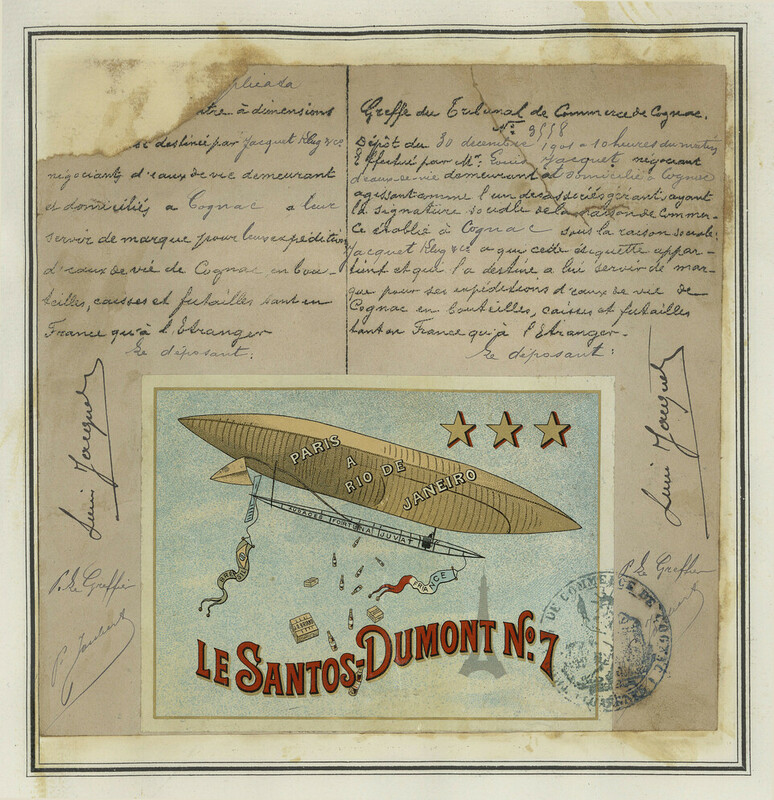 plicata
ntre.. à dimensions
destinée par Jacquet Klug & Cie
négociants d'eaux de vie demeurant
et domiciliés a Cognac a leur
servir de marque pour leurs expéditions
d'eaux de vie de Cognac en bou-
teilles, caisses et futailles tant en
France qu'à l'Etranger
Le déposant:
Louis Jacquet
P. Le Greffier
Greffe du Tribunal de Commerce de Cognac.
No: 9558
Dépôt du 30 decembre 1901 a 10 heures du matin
Effectué par Mr. Louis Jacquet négociant
d'eaux-de-vie demeurant et domicilié a Cognac
agissant comme l'un des associés gérant, ayant
la signature sociale de la maison de Commer-
ce établie à Cognac sous la raison sociale:
Jacquet Klug & Cie a qui cette étiquette appar-
tient et qui l'a destiné a lui servir de mar-
que pour ses expéditions d'eaux de vie de
Cognac en bouteilles, caisses et futailles
tant en France qu'à l'Etranger.
Le déposant:
Louis Jacquet
P. Le Greffier
PARIS
A
RIO DE
JANEIRO
AUDACES FORTUNA JUVAT
FRANCE
LE SANTOS-DUMONT No. 7
DE COMMERCE DE